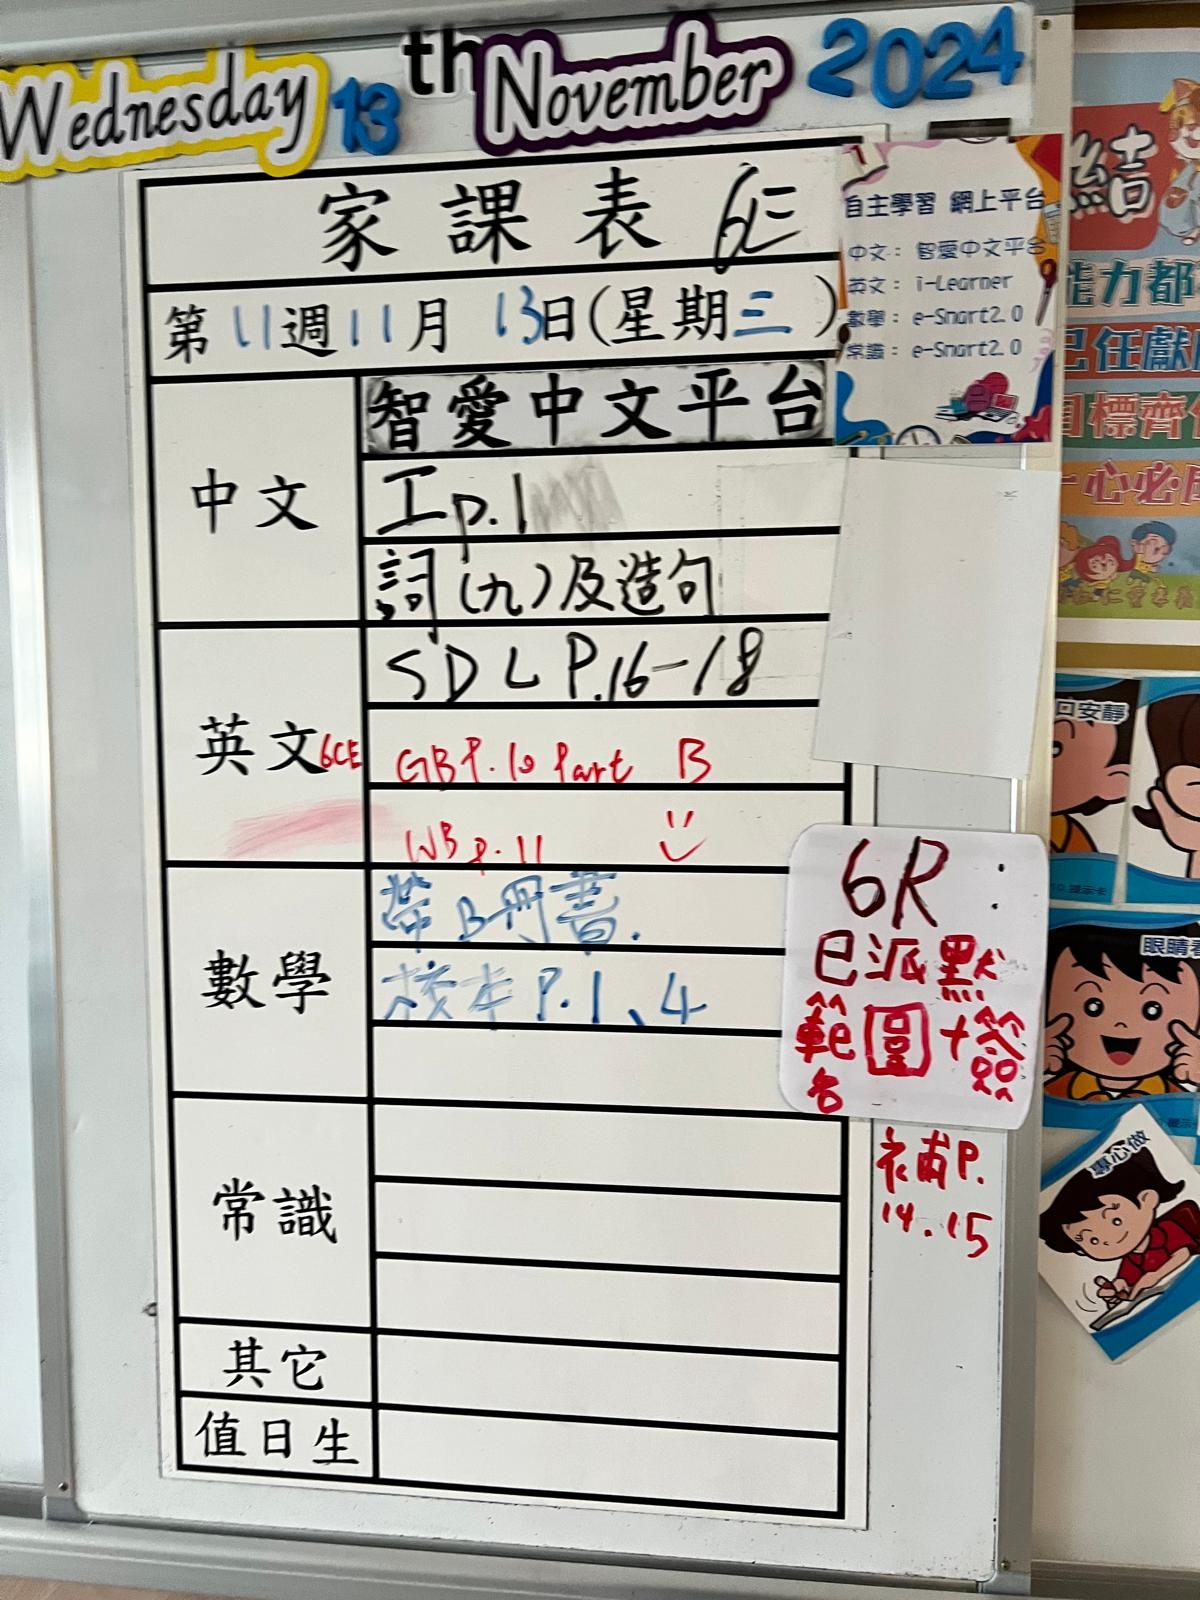 Wednesday 13th November 2024
家課表 6仁
第11週11月13日(星期三)
自主學習 網上平台
中文： 智愛中文平台
英文： i-Learner
數學： e-Smart2.0
常識： e-Smart2.0
中文
智愛中文平台
工p.1
詞(九)及造句
英文 6CE
SDL P.16-18
GB P.10 Part B
WB p.11
數學
帶B冊書.
校本 P.1、4
常識
其它
值日生
6R:
已派默
範圍+簽
名
補P.
14.15
結
能力都
己任獻
目標齊
一心必
口安靜
提示卡
眼睛看
提示卡
專心做